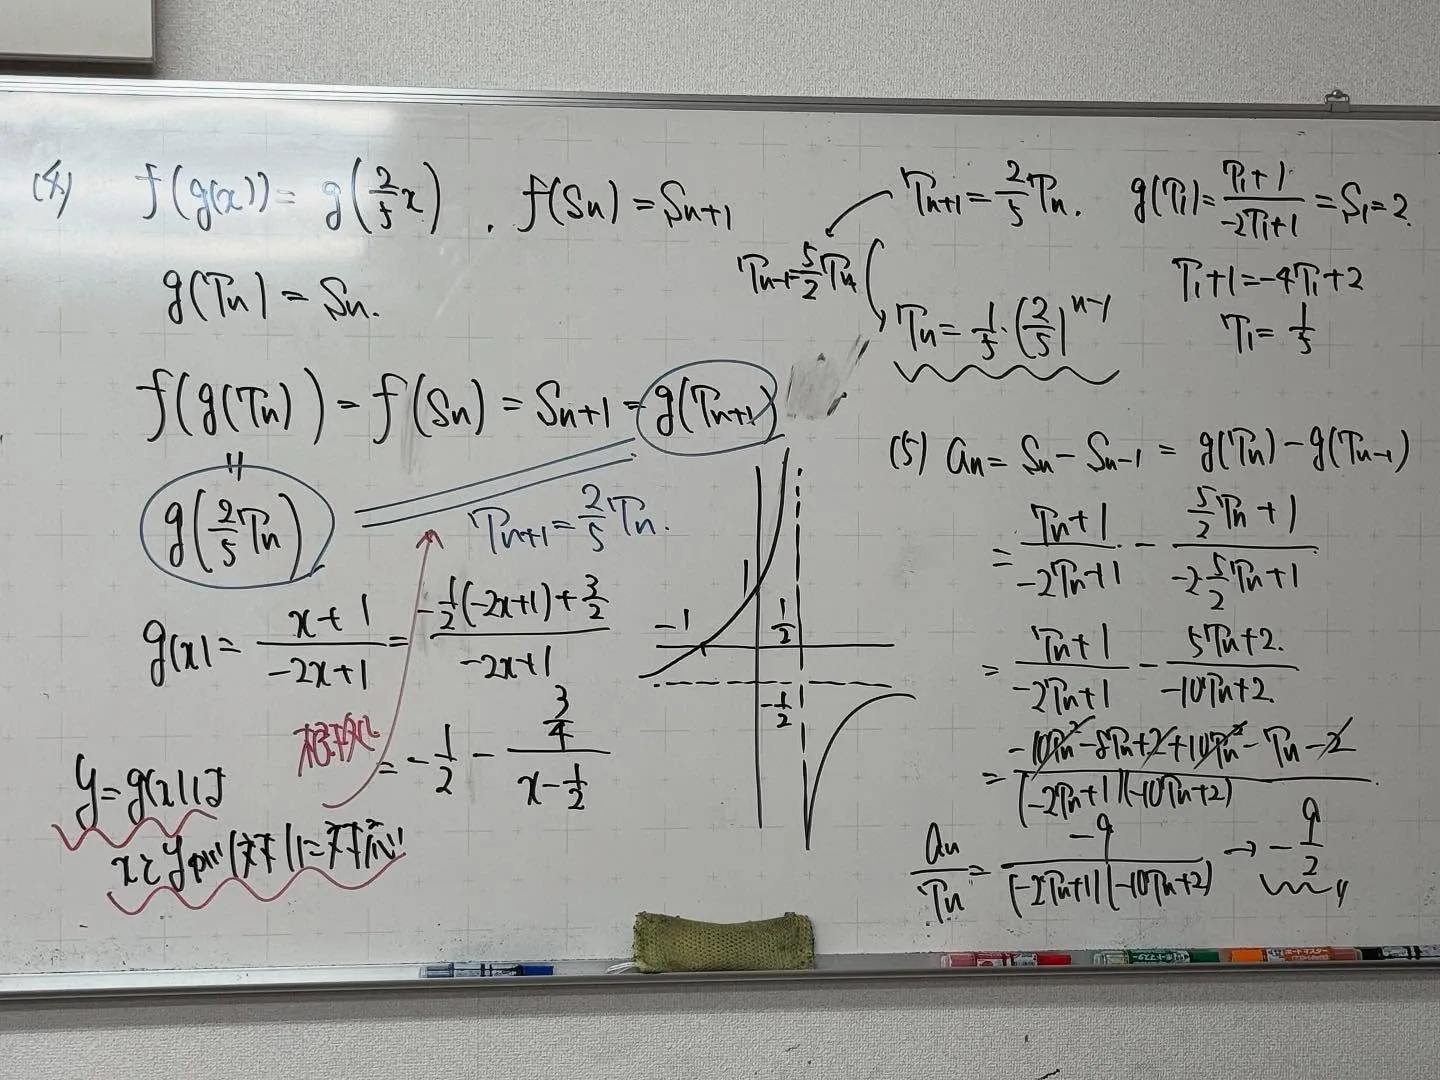 (4) f(g(x)) = g(2/5 x) . f(Sn) = Sn+1
g(Tn) = Sn.
f(g(Tn)) = f(Sn) = Sn+1 = g(Tn+1)
=
g(2/5 Tn)
Tn+1 = 2/5 Tn.
g(x) = (x+1)/(-2x+1) = (-1/2(-2x+1)+3/2)/(-2x+1)
= -1/2 - (3/4)/(x-1/2)
y=g(x)は
xとyが1対1に対応
-1
1
1/2
-1/2
Tn+1 = 2/5 Tn.
Tn-1 = 5/2 Tn
Tn = 1/5 · (2/5)^n-1
g(T1) = (T1+1)/(-2T1+1) = S1 = 2
T1+1 = -4T1+2
T1 = 1/5
(5) an = Sn - Sn-1 = g(Tn) - g(Tn-1)
= (Tn+1)/(-2Tn+1) - (5/2 Tn+1)/(-2·5/2 Tn+1)
= (Tn+1)/(-2Tn+1) - (5Tn+2)/(-10Tn+2)
= (-10Tn²-8Tn+2+10Tn²-Tn-2)/((-2Tn+1)(-10Tn+2))
an/Tn = -9/((-2Tn+1)(-10Tn+2)) → -9/2